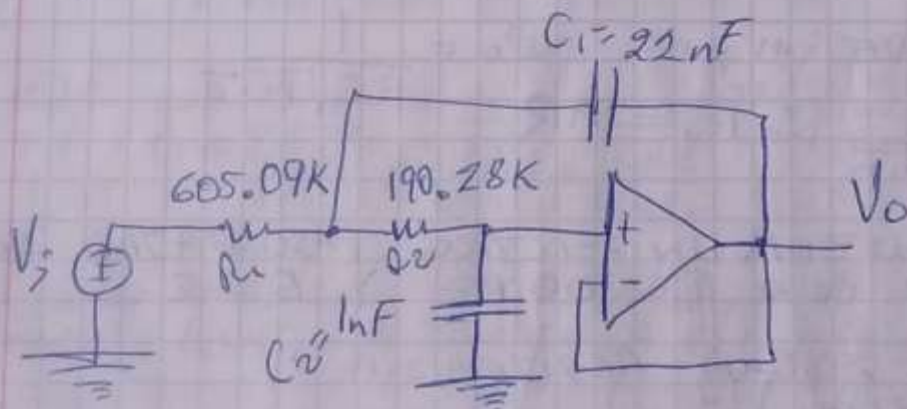 C1= 22nF
605.09K 190.28K
Vi
R1
R2
+
-
Vo
C2= 1nF